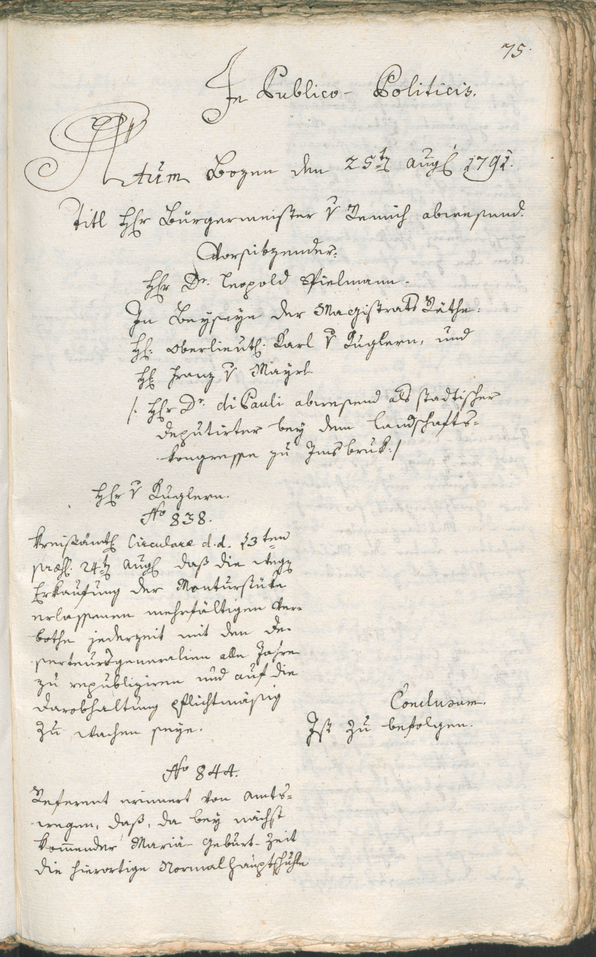 75.
In Publico-Politicis.
Actum Bozen den 25ten Augt 1791.
Titl Hhr Bürgermeister v Remich abwesend.
Vorsitzender:
Hhr Dr. Leopold Spielmann.
In Beyseyn der Magistrats Räthe:
Hh: Oberlieuth: Karl v Kuglern, und
Hh Franz v Mayrl
/: Hhr Dr. di Pauli abwesend als stadtischer
deputirter bey dem landschafts-
kongresse zu Insbruk :/
Hhr v Kuglern.
No 838.
Kreisamtl Circulare d.d. 13ten
præs: 24ten Augl daß die wegen
Erkaufung der Monturstüke
erlassenen mehrfältigen Ver-
bothe jederzeit mit den De-
serteursgeneralien alle Jahre
zu republiziren und auf die
Darobhaltung pflichtmäsig
zu wachen seye.
Conclusum.
Ist zu befolgen.
No 844.
Referent erinnert von Amts-
wegen, daß, da bey nächst
kommender Maria Geburt-Zeit
die hierortige Normalhauptschule